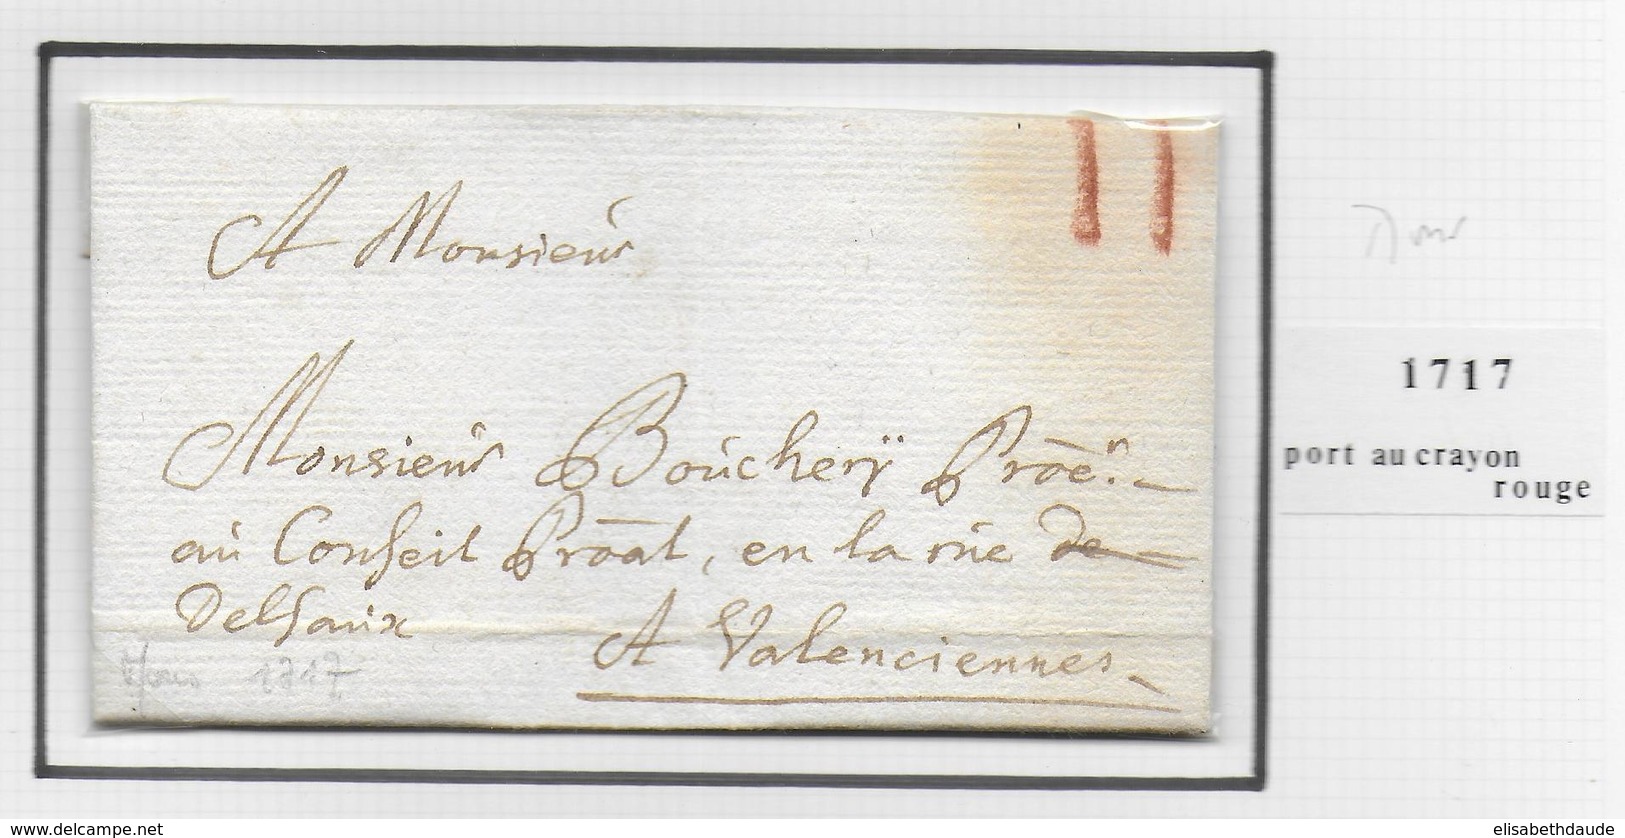 11
A Monsieur
Monsieur Boucherÿ Prõẽn.
au Conseil Prõãl, en la rue de
Delsaux
A Valenciennes
1717
1717
port au crayon
rouge
www.delcampe.net
elisabethdaude